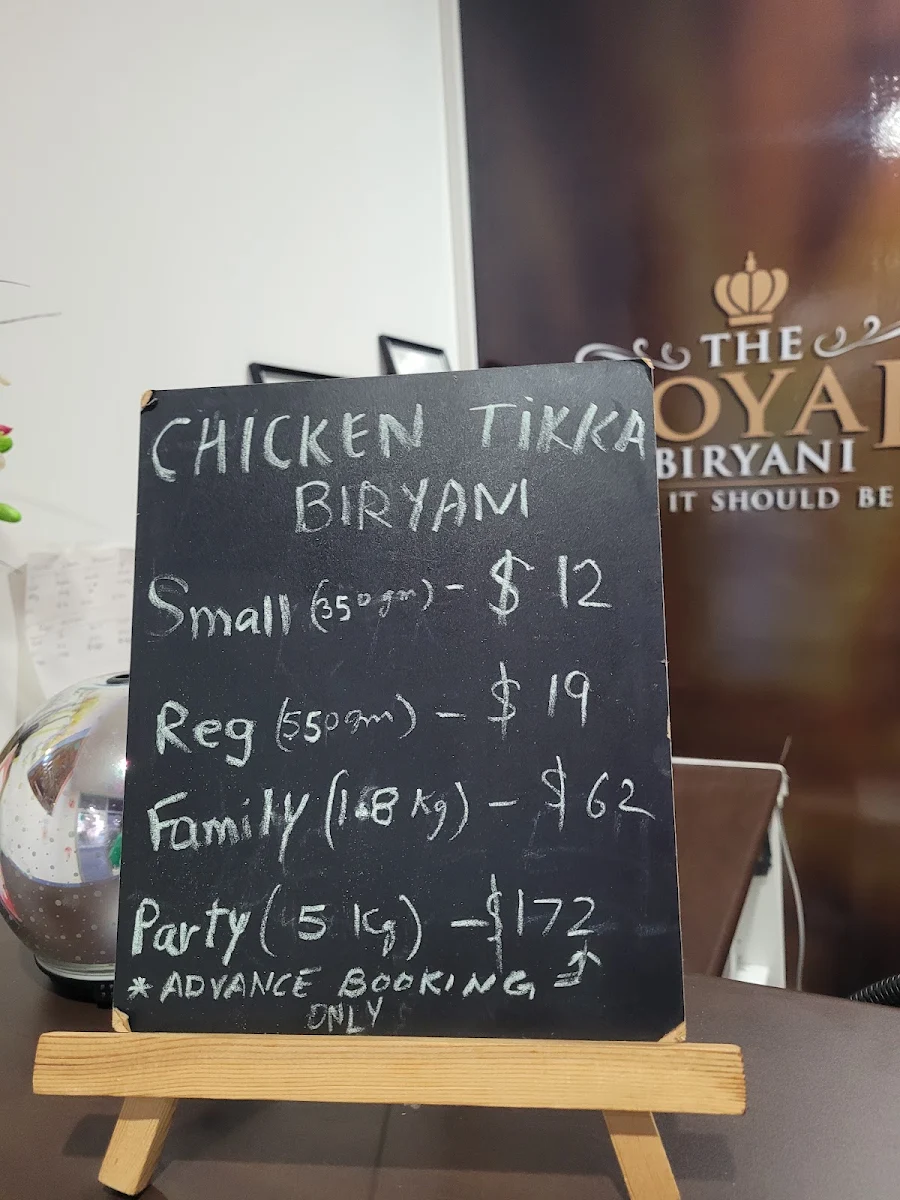 CHICKEN TiKKA
BIRYANI
Small (350gm) - $ 12
Reg (550gm) - $ 19
Family (1.8 Kg) - $ 62
Party ( 5 Kg) - $172
* ADVANCE BOOKING
ONLY
THE
OYAL
BIRYANI
IT SHOULD BE